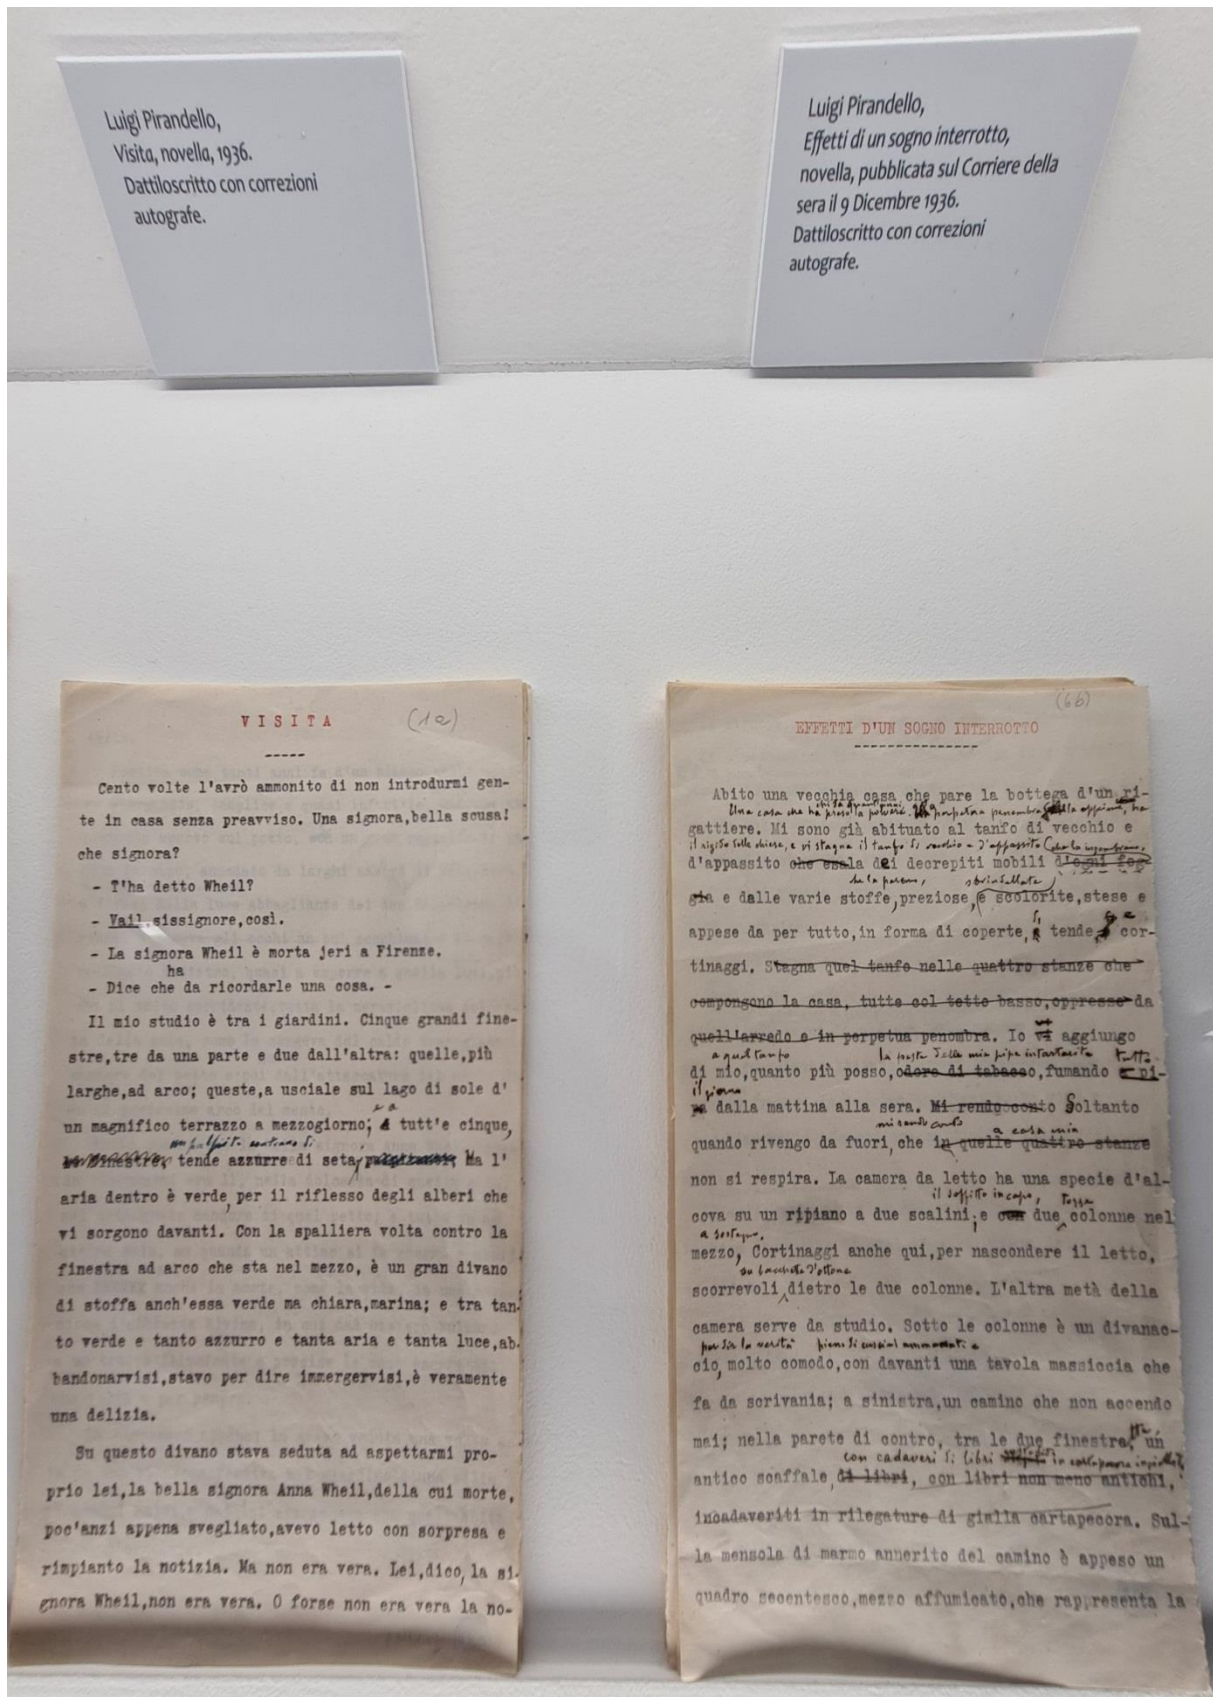 Luigi Pirandello,
Visita, novella, 1936.
Dattiloscritto con correzioni
autografe.
Luigi Pirandello,
Effetti di un sogno interrotto,
novella, pubblicata sul Corriere della
sera il 9 Dicembre 1936.
Dattiloscritto con correzioni
autografe.
VISITA (1a)
-----
Cento volte l'avrò ammonito di non introdurmi gen-
te in casa senza preavviso. Una signora,bella scusa!
che signora?
- T'ha detto Wheil?
- Vail,sissignore,così.
- La signora Wheil è morta jeri a Firenze.
ha
- Dice che da ricordarle una cosa. -
Il mio studio è tra i giardini. Cinque grandi fine-
stre,tre da una parte e due dall'altra: quelle,più
larghe,ad arco; queste,a usciale sul lago di sole d'
un magnifico terrazzo a mezzogiorno; tutt'e cinque,
un palpito continuo di
tende azzurre di seta Ma l'
aria dentro è verde, per il riflesso degli alberi che
vi sorgono davanti. Con la spalliera volta contro la
finestra ad arco che sta nel mezzo, è un gran divano
di stoffa anch'essa verde ma chiara,marina; e tra tan-
to verde e tanto azzurro e tanta aria e tanta luce,ab-
bandonarvisi,stavo per dire immergervisi,è veramente
una delizia.
Su questo divano stava seduta ad aspettarmi pro-
prio lei,la bella signora Anna Wheil,della cui morte,
poc'anzi appena svegliato,avevo letto con sorpresa e
rimpianto la notizia. Ma non era vera. Lei,dico, la si-
gnora Wheil,non era vera. O forse non era vera la no-
(6b)
EFFETTI D'UN SOGNO INTERROTTO
---------------
Abito una vecchia casa che pare la bottega d'un ri-
Una casa che ha preso la polvere. perpetua penombra ha
gattiere. Mi sono già abituato al tanfo di vecchio e
il rigido delle chiese, e vi stagna il tanfo di vecchio e d'appassito
d'appassito che esala dei decrepiti mobili d'ogni fog-
che la parano, sbrindellate
gia e dalle varie stoffe,preziose, e scolorite,stese e
appese da per tutto,in forma di coperte, tende, cor-
tinaggi. Stagna quel tanfo nelle quattro stanze che
compongono la casa, tutte col tetto basso,oppresse da
quell'arredo e in perpetua penombra. Io vi aggiungo
a quel tanfo la peste della mia pipa intartarita tutto
di mio,quanto più posso,odore di tabacco,fumando e pi-
il giorno
pa dalla mattina alla sera. Mi rendo conto Soltanto
mi rendo conto a casa mia
quando rivengo da fuori, che in quelle quattro stanze
non si respira. La camera da letto ha una specie d'al-
il soffitto in capo, tozze
cova su un ripiano a due scalini; e con due colonne nel
a sostegno.
mezzo, Cortinaggi anche qui,per nascondere il letto,
su bacchette d'ottone
scorrevoli dietro le due colonne. L'altra metà della
camera serve da studio. Sotto le colonne è un divanac-
per dir la verità pieno di cuscini ammontati e
cio, molto comodo,con davanti una tavola massiccia che
fa da scrivania; a sinistra,un camino che non accendo
mai; nella parete di contro, tra le due finestre, un
con cadaveri di libri in cartapecora
antico scaffale,di libri, con libri non meno antichi,
incadaveriti in rilegature di gialla cartapecora. Sul-
la mensola di marmo annerito del camino è appeso un
quadro secentesco,mezzo affumicato,che rappresenta la